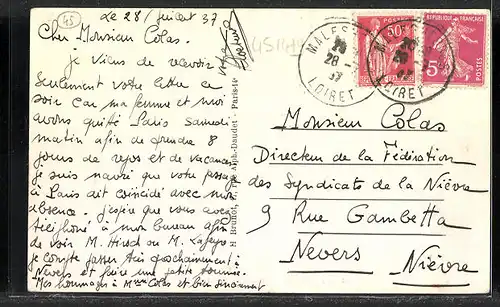 45
Le 28 Juillet 37
Cher Monsieur Colas.
Je viens de recevoir
seulement votre lettre ce
soir car ma femme et moi
avons quitté Paris samedi
matin afin de prendre 8
jours de repos et de vacances
je suis navré que votre passage
à Paris ait coïncidé avec mon
absence. J'espère que vous avez
téléphoné à mon bureau afin
de voir M. Hirsch ou M.
je compte passer très prochainement à
Nevers et faire une petite tournée.
Mes hommages à Mme Colas et bien sincèrement
votre
Bis, r. Alph.-Daudet - Paris-14e
MALESHERBES
28 -
37
LOIRET
50c
POSTES
RÉPUBLIQUE FRANÇAISE
5c
POSTES
LOIRET
Monsieur Colas
Directeur de la Fédération
des Syndicats de la Nièvre
9 Rue Gambetta
Nevers
Nièvre